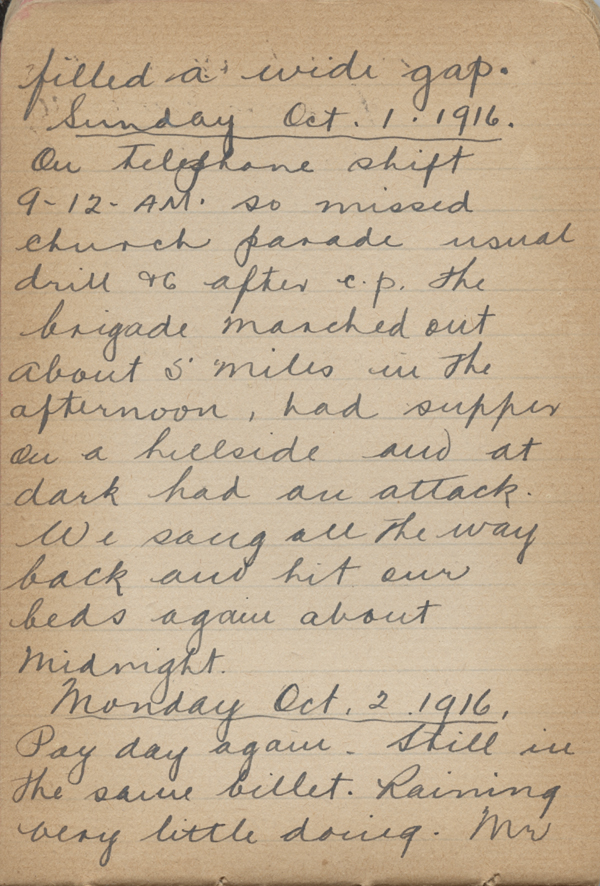 filled a wide gap.
Sunday Oct. 1. 1916.
On telephone shift
9-12- AM. so missed
church parade usual
drill &c after c.p. The
brigade marched out
about 5 miles in the
afternoon, had supper
on a hillside and at
dark had an attack.
We sang all the way
back and hit our
beds again about
Midnight.
Monday Oct. 2. 1916,
Pay day again - Still in
the same billet. Raining
very little doing. Mr